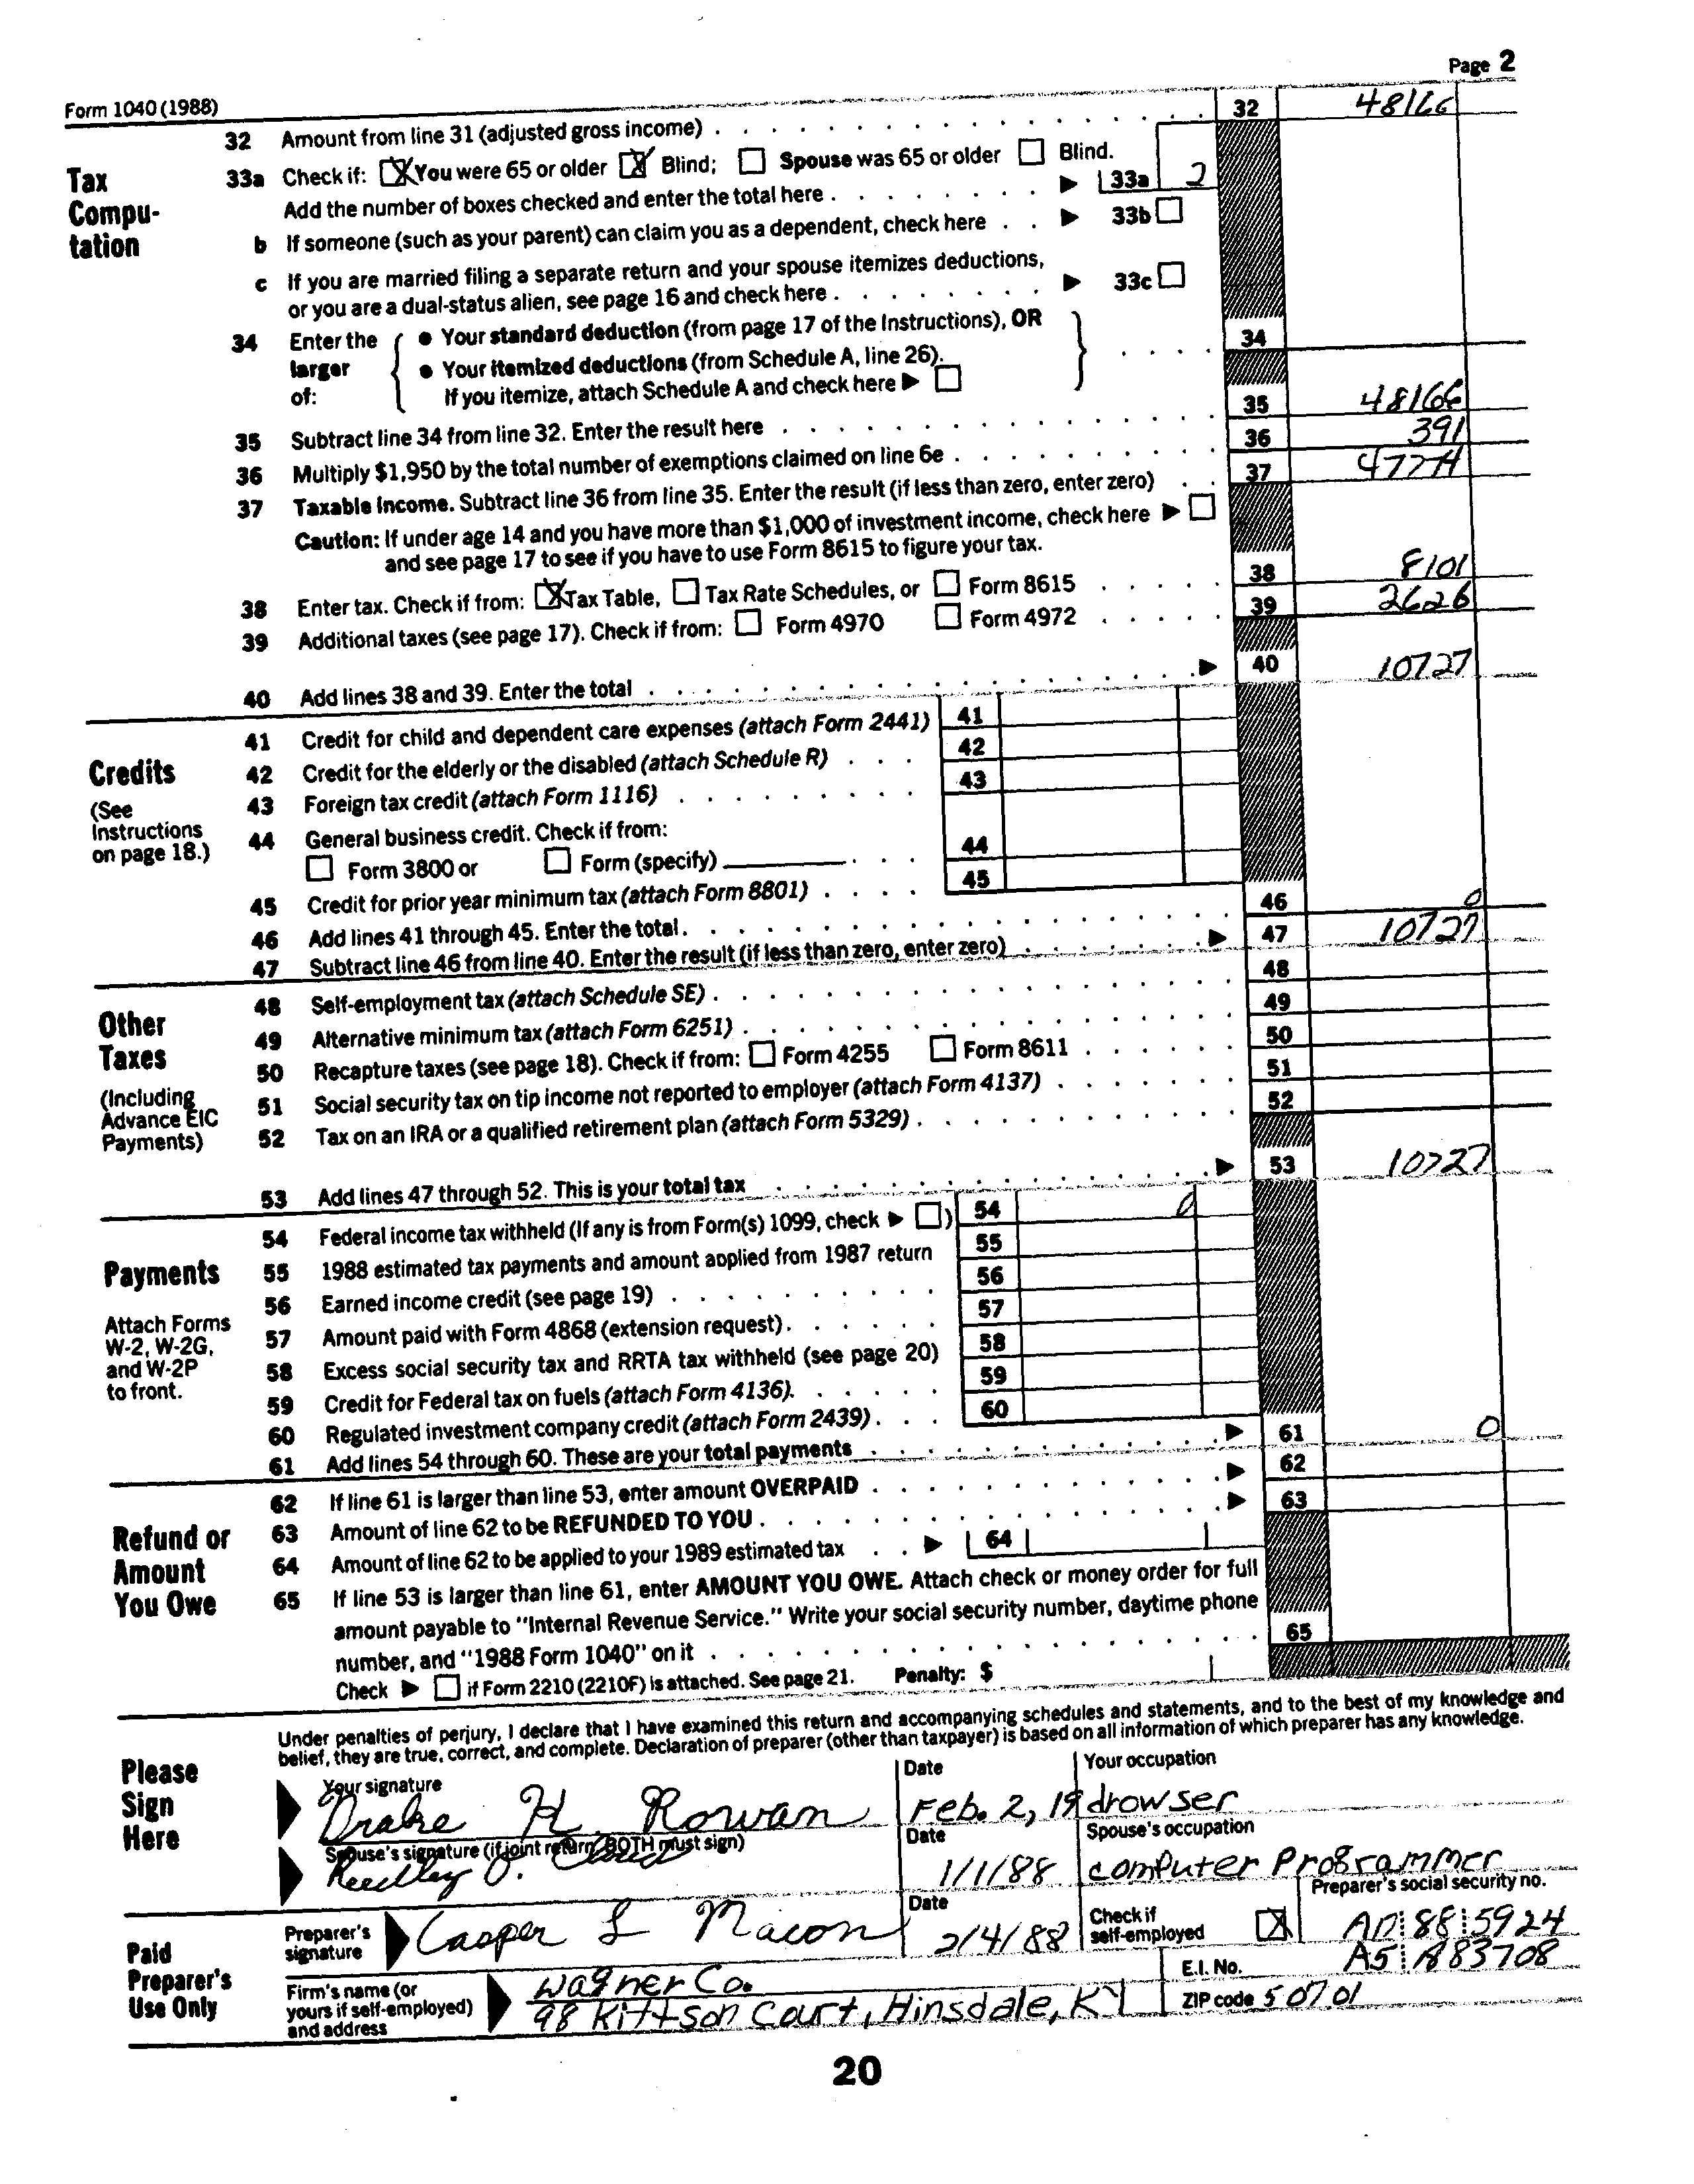 Page 2
Form 1040 (1988)
32 Amount from line 31 (adjusted gross income) 32 48166
Tax Compu-tation
33a Check if: X You were 65 or older X Blind; Spouse was 65 or older Blind.
Add the number of boxes checked and enter the total here 33a 2
b If someone (such as your parent) can claim you as a dependent, check here 33b
c If you are married filing a separate return and your spouse itemizes deductions,
or you are a dual-status alien, see page 16 and check here 33c
34 Enter the larger of:
• Your standard deduction (from page 17 of the Instructions), OR
• Your itemized deductions (from Schedule A, line 26).
If you itemize, attach Schedule A and check here
34
35 Subtract line 34 from line 32. Enter the result here 35 48166
36 Multiply $1,950 by the total number of exemptions claimed on line 6e 36 391
37 Taxable income. Subtract line 36 from line 35. Enter the result (if less than zero, enter zero) 37
Caution: If under age 14 and you have more than $1,000 of investment income, check here
and see page 17 to see if you have to use Form 8615 to figure your tax.
38 Enter tax. Check if from: X Tax Table, Tax Rate Schedules, or Form 8615 38 8101
39 Additional taxes (see page 17). Check if from: Form 4970 Form 4972 39 2626
40 Add lines 38 and 39. Enter the total 40 10727
Credits
(See Instructions on page 18.)
41 Credit for child and dependent care expenses (attach Form 2441) 41
42 Credit for the elderly or the disabled (attach Schedule R) 42
43 Foreign tax credit (attach Form 1116) 43
44 General business credit. Check if from:
Form 3800 or Form (specify) 44
45 Credit for prior year minimum tax (attach Form 8801) 45
46 Add lines 41 through 45. Enter the total 46 0
47 Subtract line 46 from line 40. Enter the result (if less than zero, enter zero) 47 10727
Other Taxes
(Including Advance EIC Payments)
48 Self-employment tax (attach Schedule SE) 48
49 Alternative minimum tax (attach Form 6251) 49
50 Recapture taxes (see page 18). Check if from: Form 4255 Form 8611 50
51 Social security tax on tip income not reported to employer (attach Form 4137) 51
52 Tax on an IRA or a qualified retirement plan (attach Form 5329) 52
53 Add lines 47 through 52. This is your total tax 53 10727
Payments
Attach Forms W-2, W-2G, and W-2P to front.
54 Federal income tax withheld (If any is from Form(s) 1099, check ) 54 0
55 1988 estimated tax payments and amount applied from 1987 return 55
56 Earned income credit (see page 19) 56
57 Amount paid with Form 4868 (extension request) 57
58 Excess social security tax and RRTA tax withheld (see page 20) 58
59 Credit for Federal tax on fuels (attach Form 4136). 59
60 Regulated investment company credit (attach Form 2439) 60
61 Add lines 54 through 60. These are your total payments 61 0
Refund or Amount You Owe
62 If line 61 is larger than line 53, enter amount OVERPAID 62
63 Amount of line 62 to be REFUNDED TO YOU 63
64 Amount of line 62 to be applied to your 1989 estimated tax 64
65 If line 53 is larger than line 61, enter AMOUNT YOU OWE. Attach check or money order for full
amount payable to "Internal Revenue Service." Write your social security number, daytime phone
number, and "1988 Form 1040" on it 65
Check if Form 2210 (2210F) is attached. See page 21. Penalty: $
Please Sign Here
Under penalties of perjury, I declare that I have examined this return and accompanying schedules and statements, and to the best of my knowledge and
belief, they are true, correct, and complete. Declaration of preparer (other than taxpayer) is based on all information of which preparer has any knowledge.
Your signature Date Your occupation
Drake H Rowan Feb. 2, 19 drowser
Spouse's signature (if joint return, BOTH must sign) Date Spouse's occupation
Reedley O. 1/1/88 computer Programmer
Paid Preparer's Use Only
Preparer's signature Date Check if self-employed X Preparer's social security no.
Casper L Macon 2/4/88 88 5924
Firm's name (or yours if self-employed) and address
Wagner Co. E.I. No. A5 A83708
98 Kittson Court, Hinsdale, KY ZIP code 50701
20